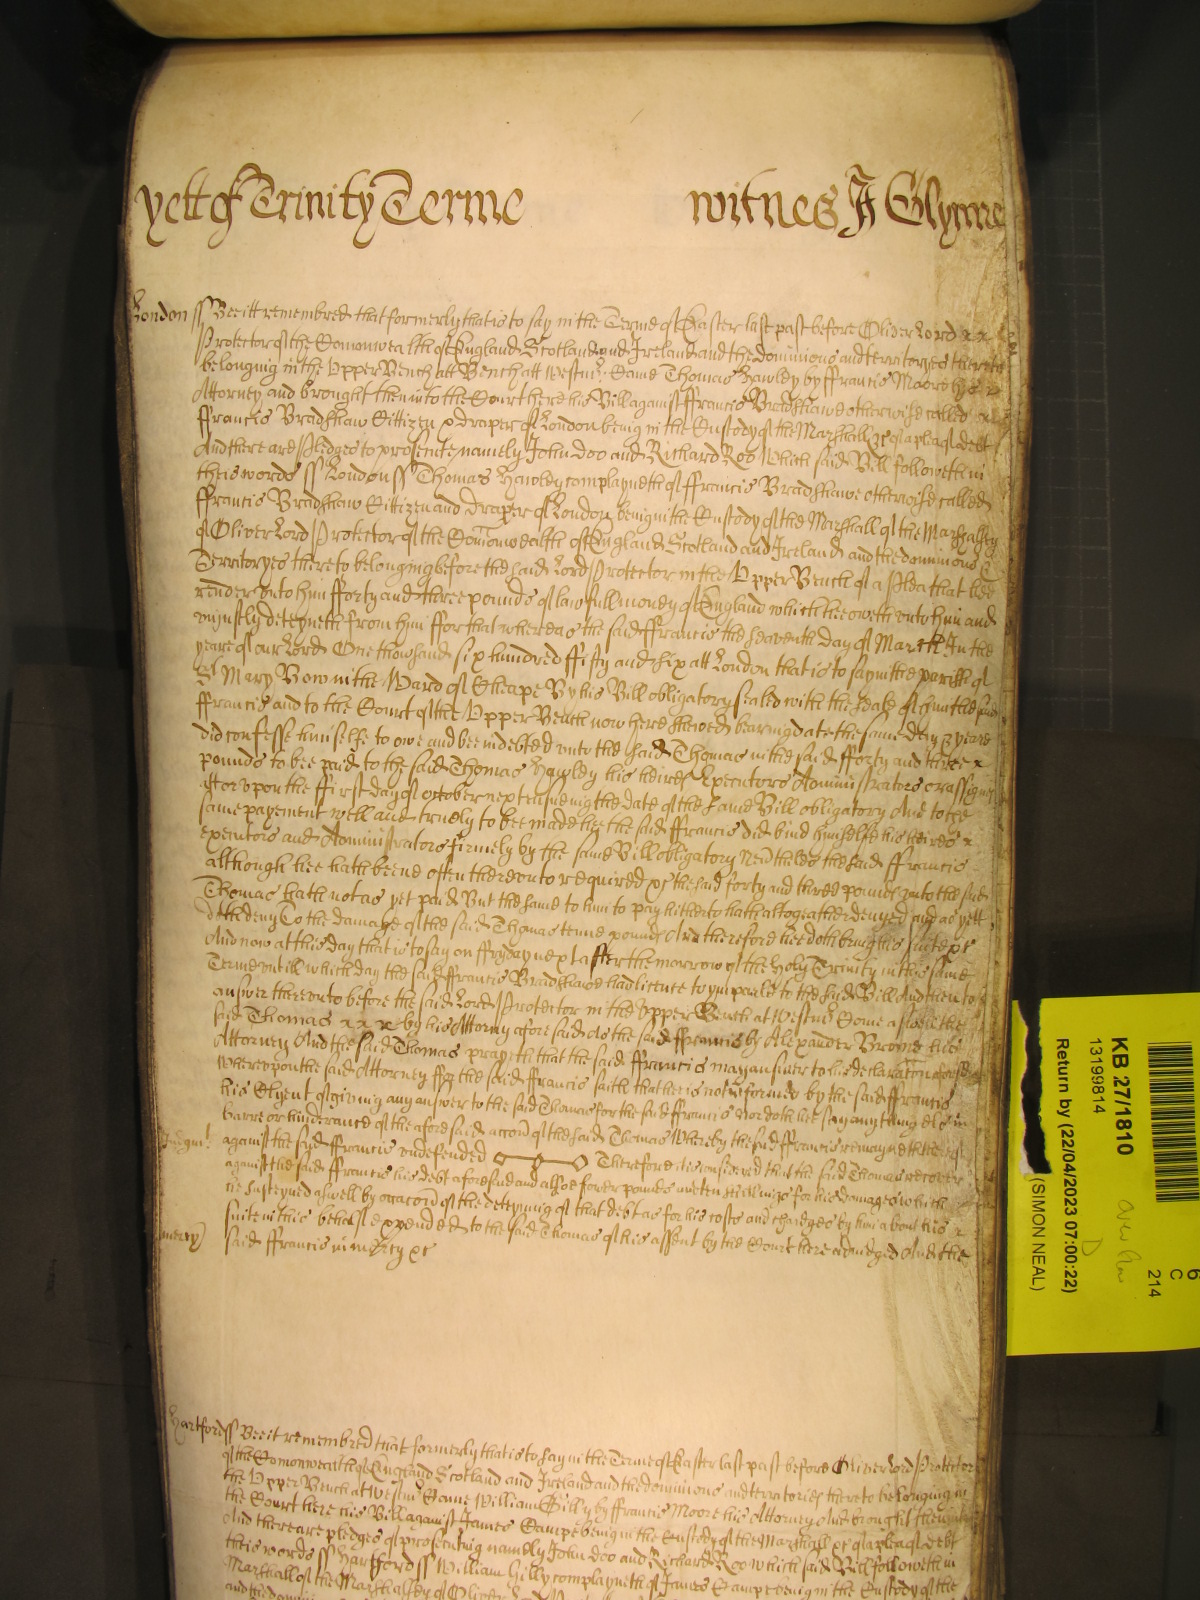 yett of Trinity Terme witnes J Glynne
London ss Bee itt remembred that formerly that is to say in the Terme of Easter last past before Oliver Lord x x
Protector of the Comonwealth of England Scotland and Ireland and the dominions and terratoryes thereto
belonging in the Upper Bench att Bench att Westmr. Came Thomas Hawley by ffrancis Moore his x
Attorney and brought then into the Court here his Bill against ffrancis Bradshawe otherwise called
ffrancis Bradshaw Cittizen & draper of London being in the Custody of the Marshall &c of a plea of debt
And there are Pledges to prosecute namely John Doo and Richard Roo Which said Bill followeth in
theis words ss London ss Thomas Hawley complayneth of ffrancis Bradshawe otherwise called
ffrancis Bradshaw Cittizen and draper of London being in the Custody of the Marshall of the Marshalsey
of Oliver Lord Protector of the Comonwealth of England Scotland and Ireland and the dominions &
Territoryes thereto belonging before the said Lord Protector in the Upper Bench of a Plea that hee
render unto him fforty and three pounds of lawfull money of England which hee oweth unto him and
uniustly deteyneth from him ffor that whereas the said ffrancis the seaventh day of March In the
yeare of our Lord One thousand six hundred ffifty and six att London that is to say in the parish of
St Mary Bow in the Ward of Cheape By his Bill obligatory sealed with the seale of him the said
ffrancis and to the Court of the Upper Bench now here shewed bearing date the same day & yeare
did confesse himselfe to owe and bee indebted unto the said Thomas in the said fforty and three x
pounds to bee paid to the said Thomas Hawley his heires Executors Administrators or assignes
att or upon the ffirst day of october next ensueing the date of the same Bill obligatory And to the
same payement well and truely to bee made hee the said ffrancis did bind himselfe his heires x
executors and Administrators firmely by the same Bill obligatory Nevtheles the said ffrancis
although hee hath beene often thereunto required &c the said forty and three pounds unto the said
Thomas hath not as yet paid But the same to him to pay hitherto hath altogeather denyed and as yett
doth deny To the damage of the said Thomas tenne pounds And therefore hee doth bring his suite &c
And now at this day that is to say on ffryday next after the morrow of the Holy Trinity in this same
Terme untill which day the said ffrancis Bradshawe had licence to imparle to the said Bill And then to
answer thereunto before the said Lord Protector in the Upper Bench at Westmr. Come aswell the
said Thomas x x x by his Attorny afore said As the said ffrancis by Alexander Brome his
Attorney And the said Thomas prayeth that the said ffrancis may answer to his declaration aforesaid
Whereupon the said Attorney for the said ffrancis saith that he is not informed by the said ffrancis
his Clyent of giving any answer to the said Thomas for the said ffrancis Nor doth hee say any thing els in
barre or hinderance of the aforesaid accon of the said Thomas Whereby the said ffrancis remayneth therein
Judgmt. against the said ffrancis undefended Therefore itt is considered that the said Thomas recover
against the said ffrancis his debt aforesaid and alsoe fower pounds and ten shillings for his damages which
he susteyned aswell by occacon of the deteyning of that debt as for his costs and chardges by him about his x
suite in this behalfe expended to the said Thomas of his assent by the Court here adiudged And the
mercy said ffrancis in mercy &c
Hartford ss Bee it remembred that formerly that is to say in the Terme of Easter last past before Oliver Lord Protector
of the Comonwealth of England Scotland and Ireland and the dominions and territories thereto belonging in
the Upper Bench at Westmr. Came William Gilly by ffrancis Moore his Attorney And brought then into
the Court here his Bill against James Campe being in the Custody of the Marshall &c of a plea of debt
And there are pledges of prosecuting namely John doo and Richard Roo which said Bill followeth in
theis words ss Hartford ss William Gilly complayneth of James Campe being in the Custody of the
Marshall of the Marshalsey of Oliver Lord
KB 27/1810
13199814
Return by (22/04/2023 07:00:22)
(SIMON NEAL)
6
C
214
D